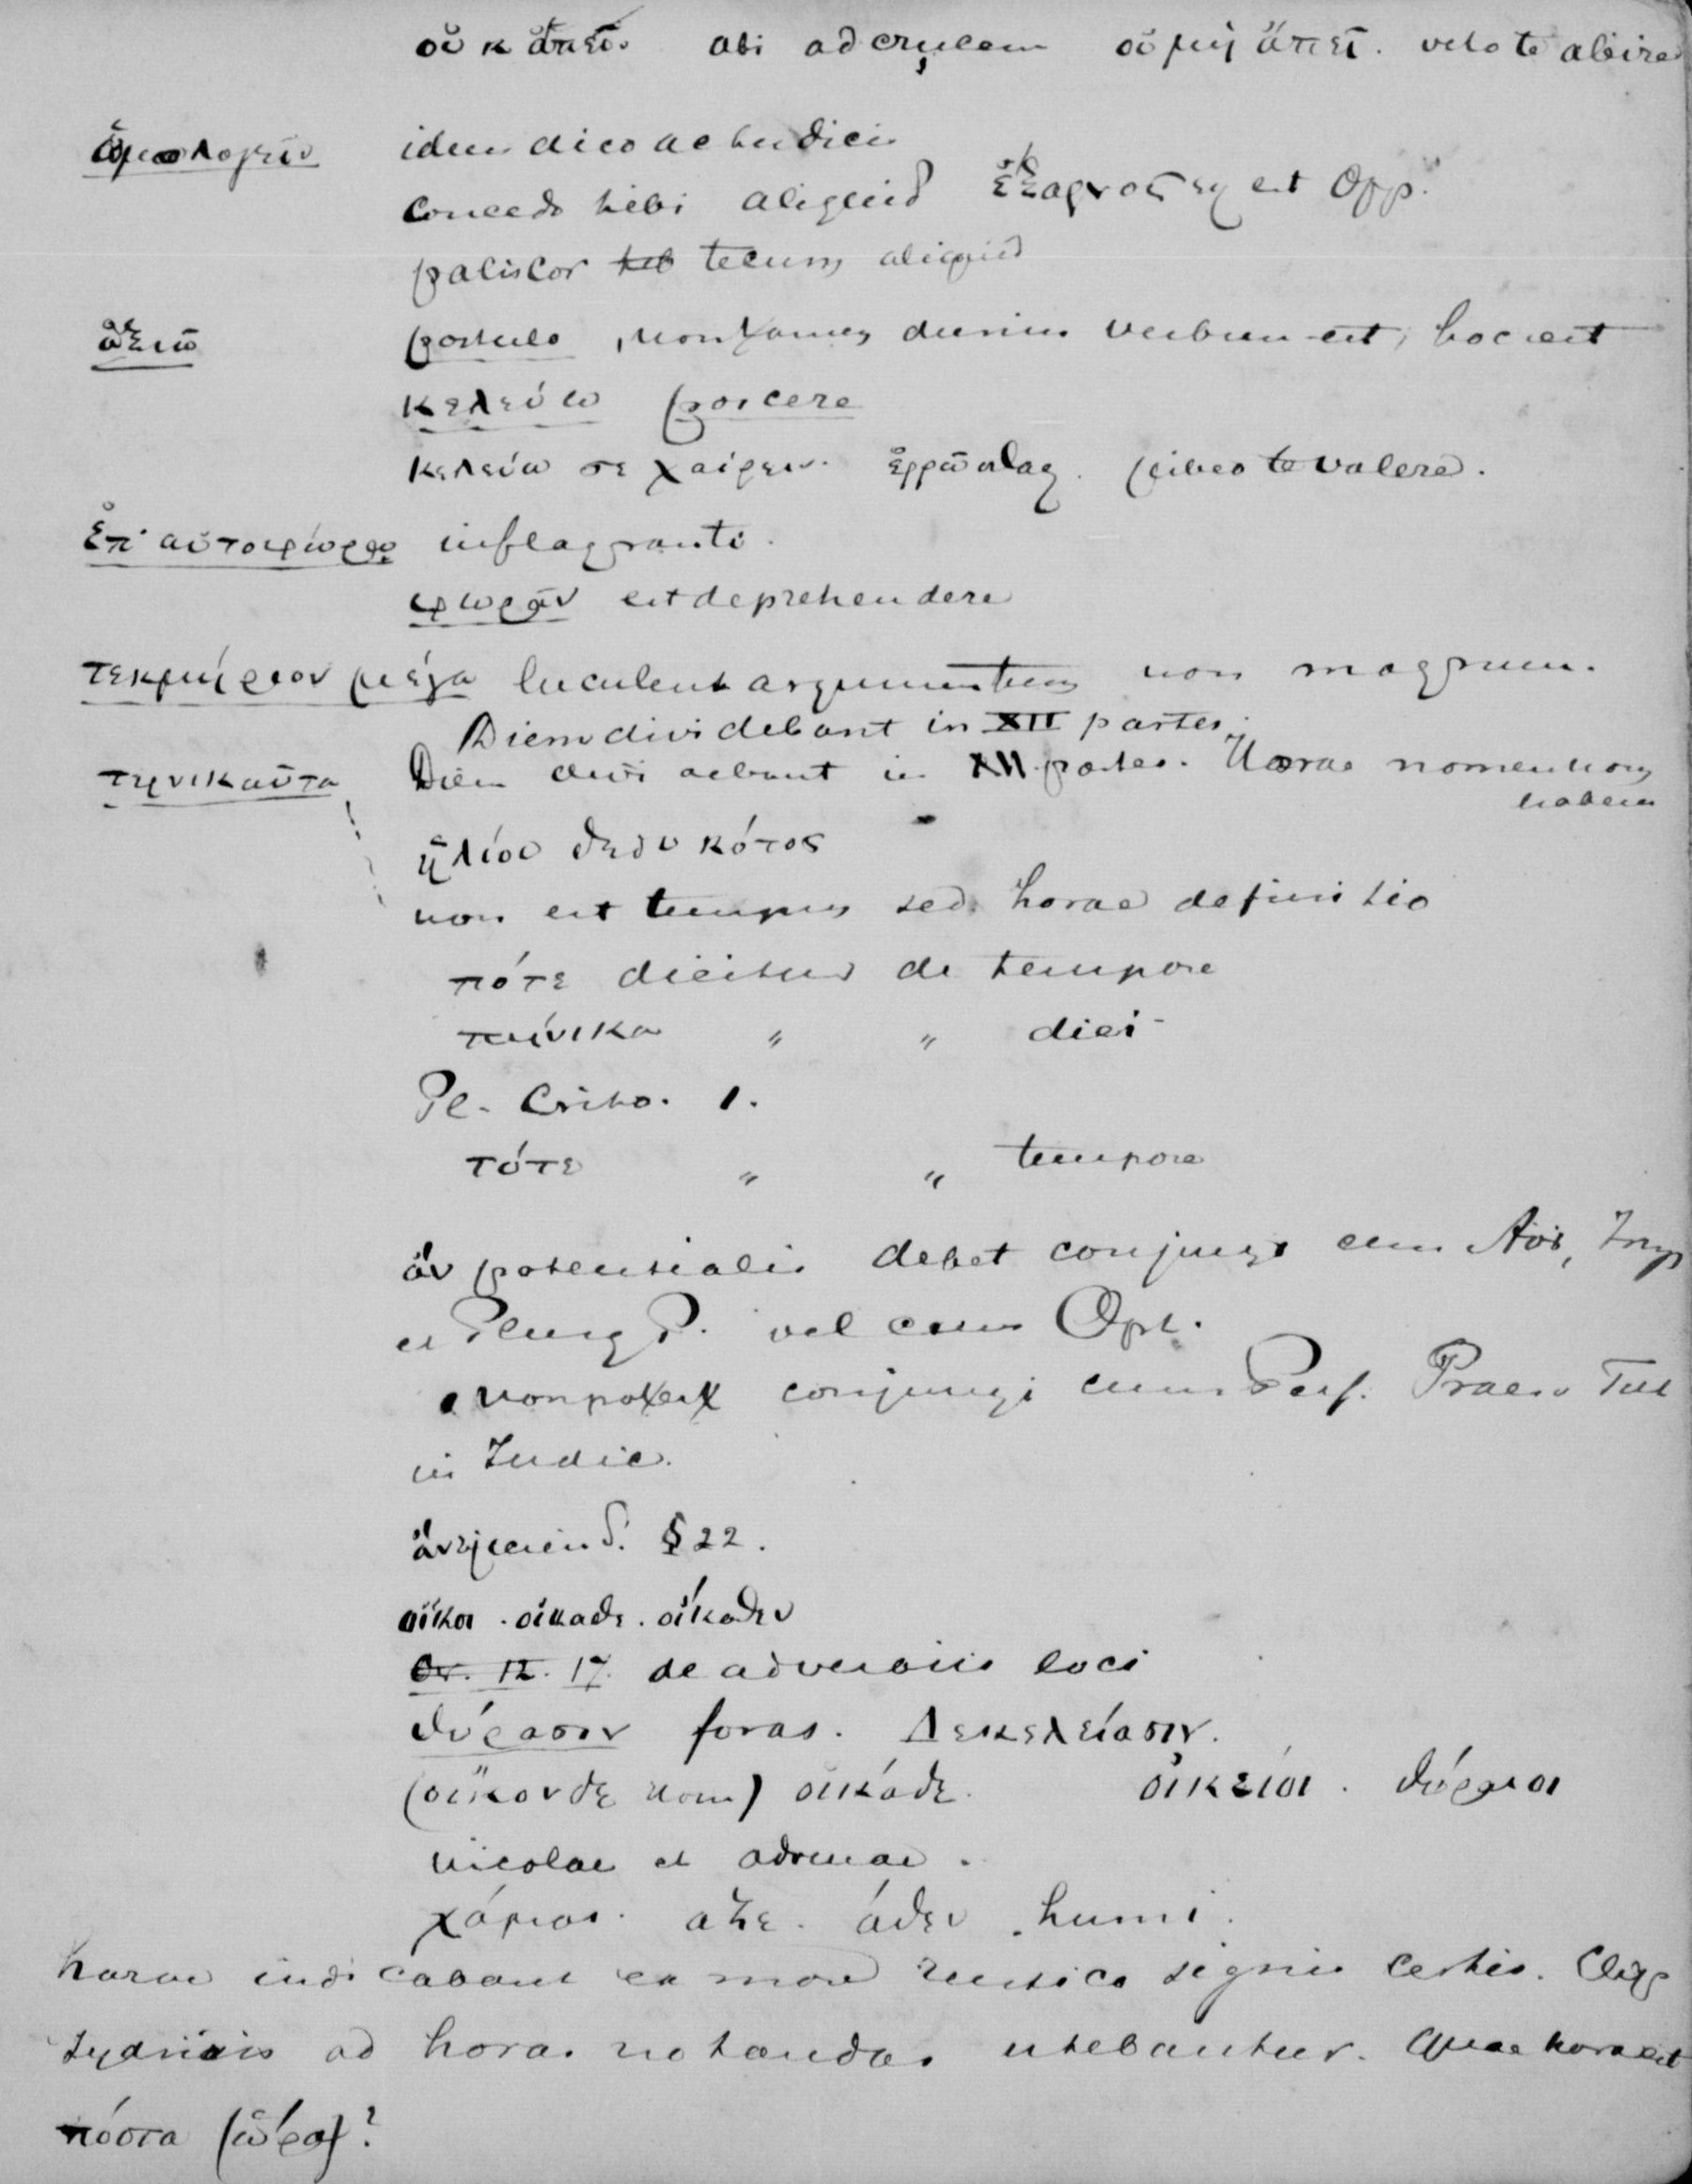 οὐκ ἄπει. abi ad crucem οὐ μὴ ἄπει. veto te abire
ὁμολογεῖν idem dico ac tu dicis
concedo tibi aliquid ἔξαρνός εἰμι est Opp.
paciscor tecum aliquid
ἀξιῶ postulo, non tamen durius verbum est, hoc est
κελεύω poscere
κελεύω σε χαίρειν. ἐρρῶσθαι. jubeo te valere.
ἐπ' αὐτοφώρῳ in flagranti.
φωρᾶν est deprehendere
τεκμήριον μέγα luculent argumentum non magnum.
Diem dividebant in XII partes.
τηνικαῦτα Diem dividebant in XII partes. Horae nomen non
habent
ἡλίου δεδυκότος
non est tempus sed horae definitio
πότε dicitur de tempore
πηνίκα " " diei
Pl. Crito. 1.
τότε " " tempore
ἄν potentialis debet conjungi cum Aor, Imp
et Plusq P. vel cum Opt.
non potest conjungi cum Perf. Praes Fut
in Indic.
§ 22.
οἴκοι . οἴκαδε . οἴκοθεν
Or. 12. 17. de adverbiis loci
θύρασιν foras. Δεκελείασιν.
(οἴκονδε Hom) οἴκαδε. οἰκεῖοι . θύραιοι
incolae et advenae.
χάμαι. αζε. άθεν humi.
horae indicabant ex more rustico signis certis. Clep
sydriis ad horas notandas utebantur. Quae hora est
πόστα (ὥρα)?